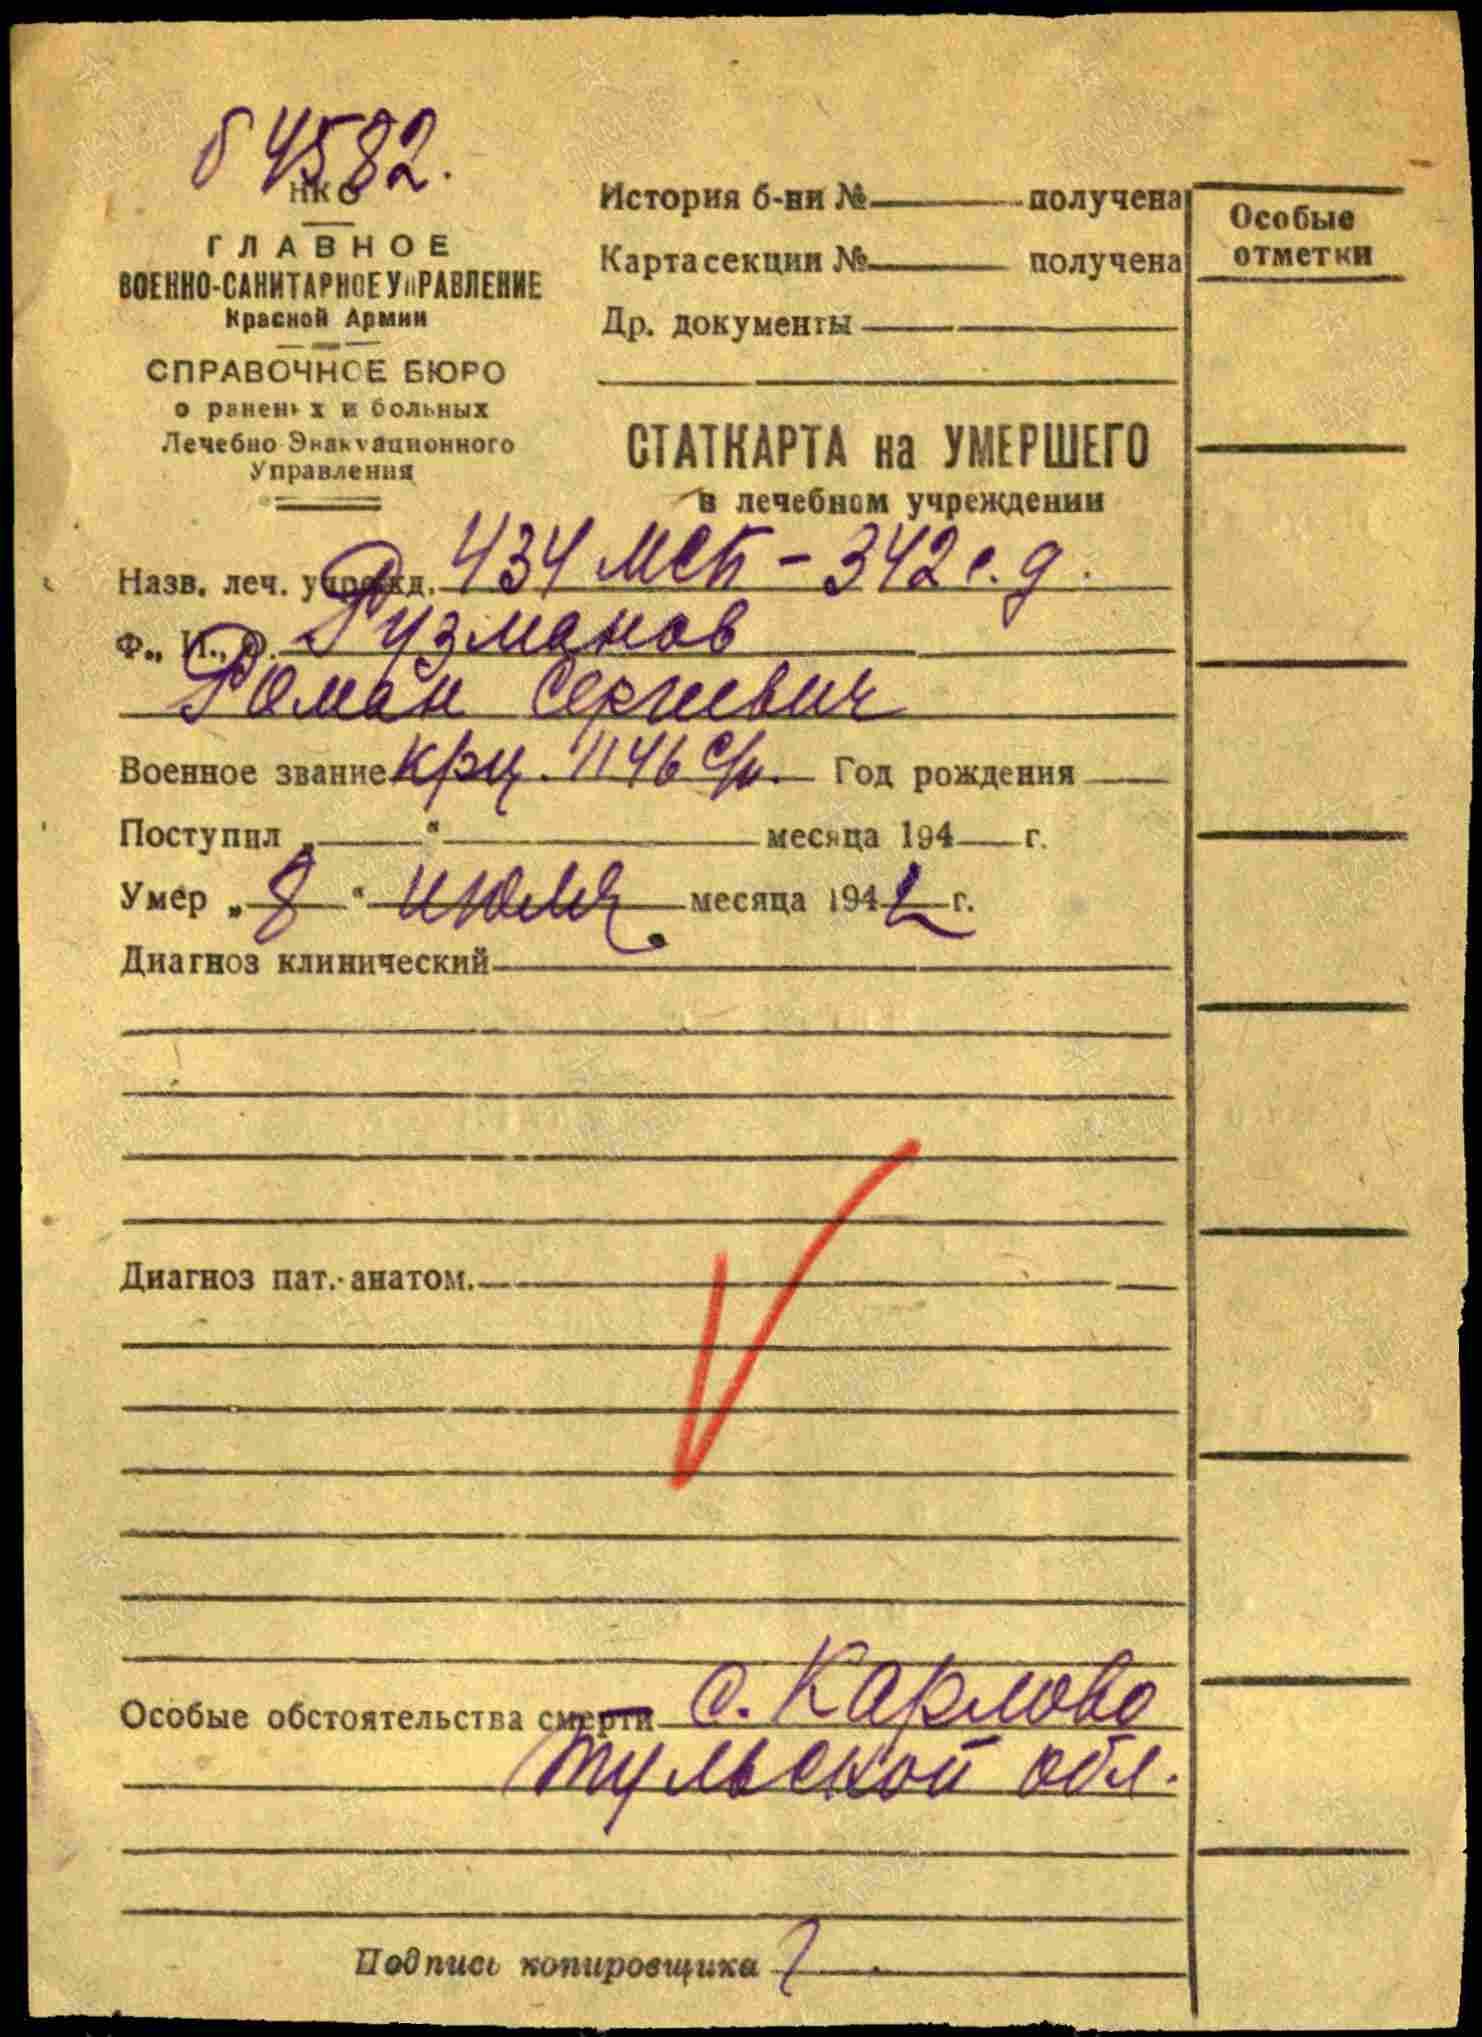 б 4582.
НКО
ГЛАВНОЕ
ВОЕННО-САНИТАРНОЕ УПРАВЛЕНИЕ
Красной Армии
СПРАВОЧНОЕ БЮРО
о раненых и больных
Лечебно-Эвакуационного
Управления
История б-ни № получена
Карта секции № получена
Др. документы
Особые
отметки
СТАТКАРТА на УМЕРШЕГО
в лечебном учреждении
Назв. леч. учрежд. 434 МСБ - 342 с. д.
Ф., И., О. Рузманов
Роман Сергеевич
Военное звание крц. 1146 с/п. Год рождения
Поступил „ “ месяца 194 г.
Умер „8“ июля месяца 1942 г.
Диагноз клинический
Диагноз пат.-анатом.
Особые обстоятельства смерти с. Карлово
Тульской обл.
Подпись копировщика